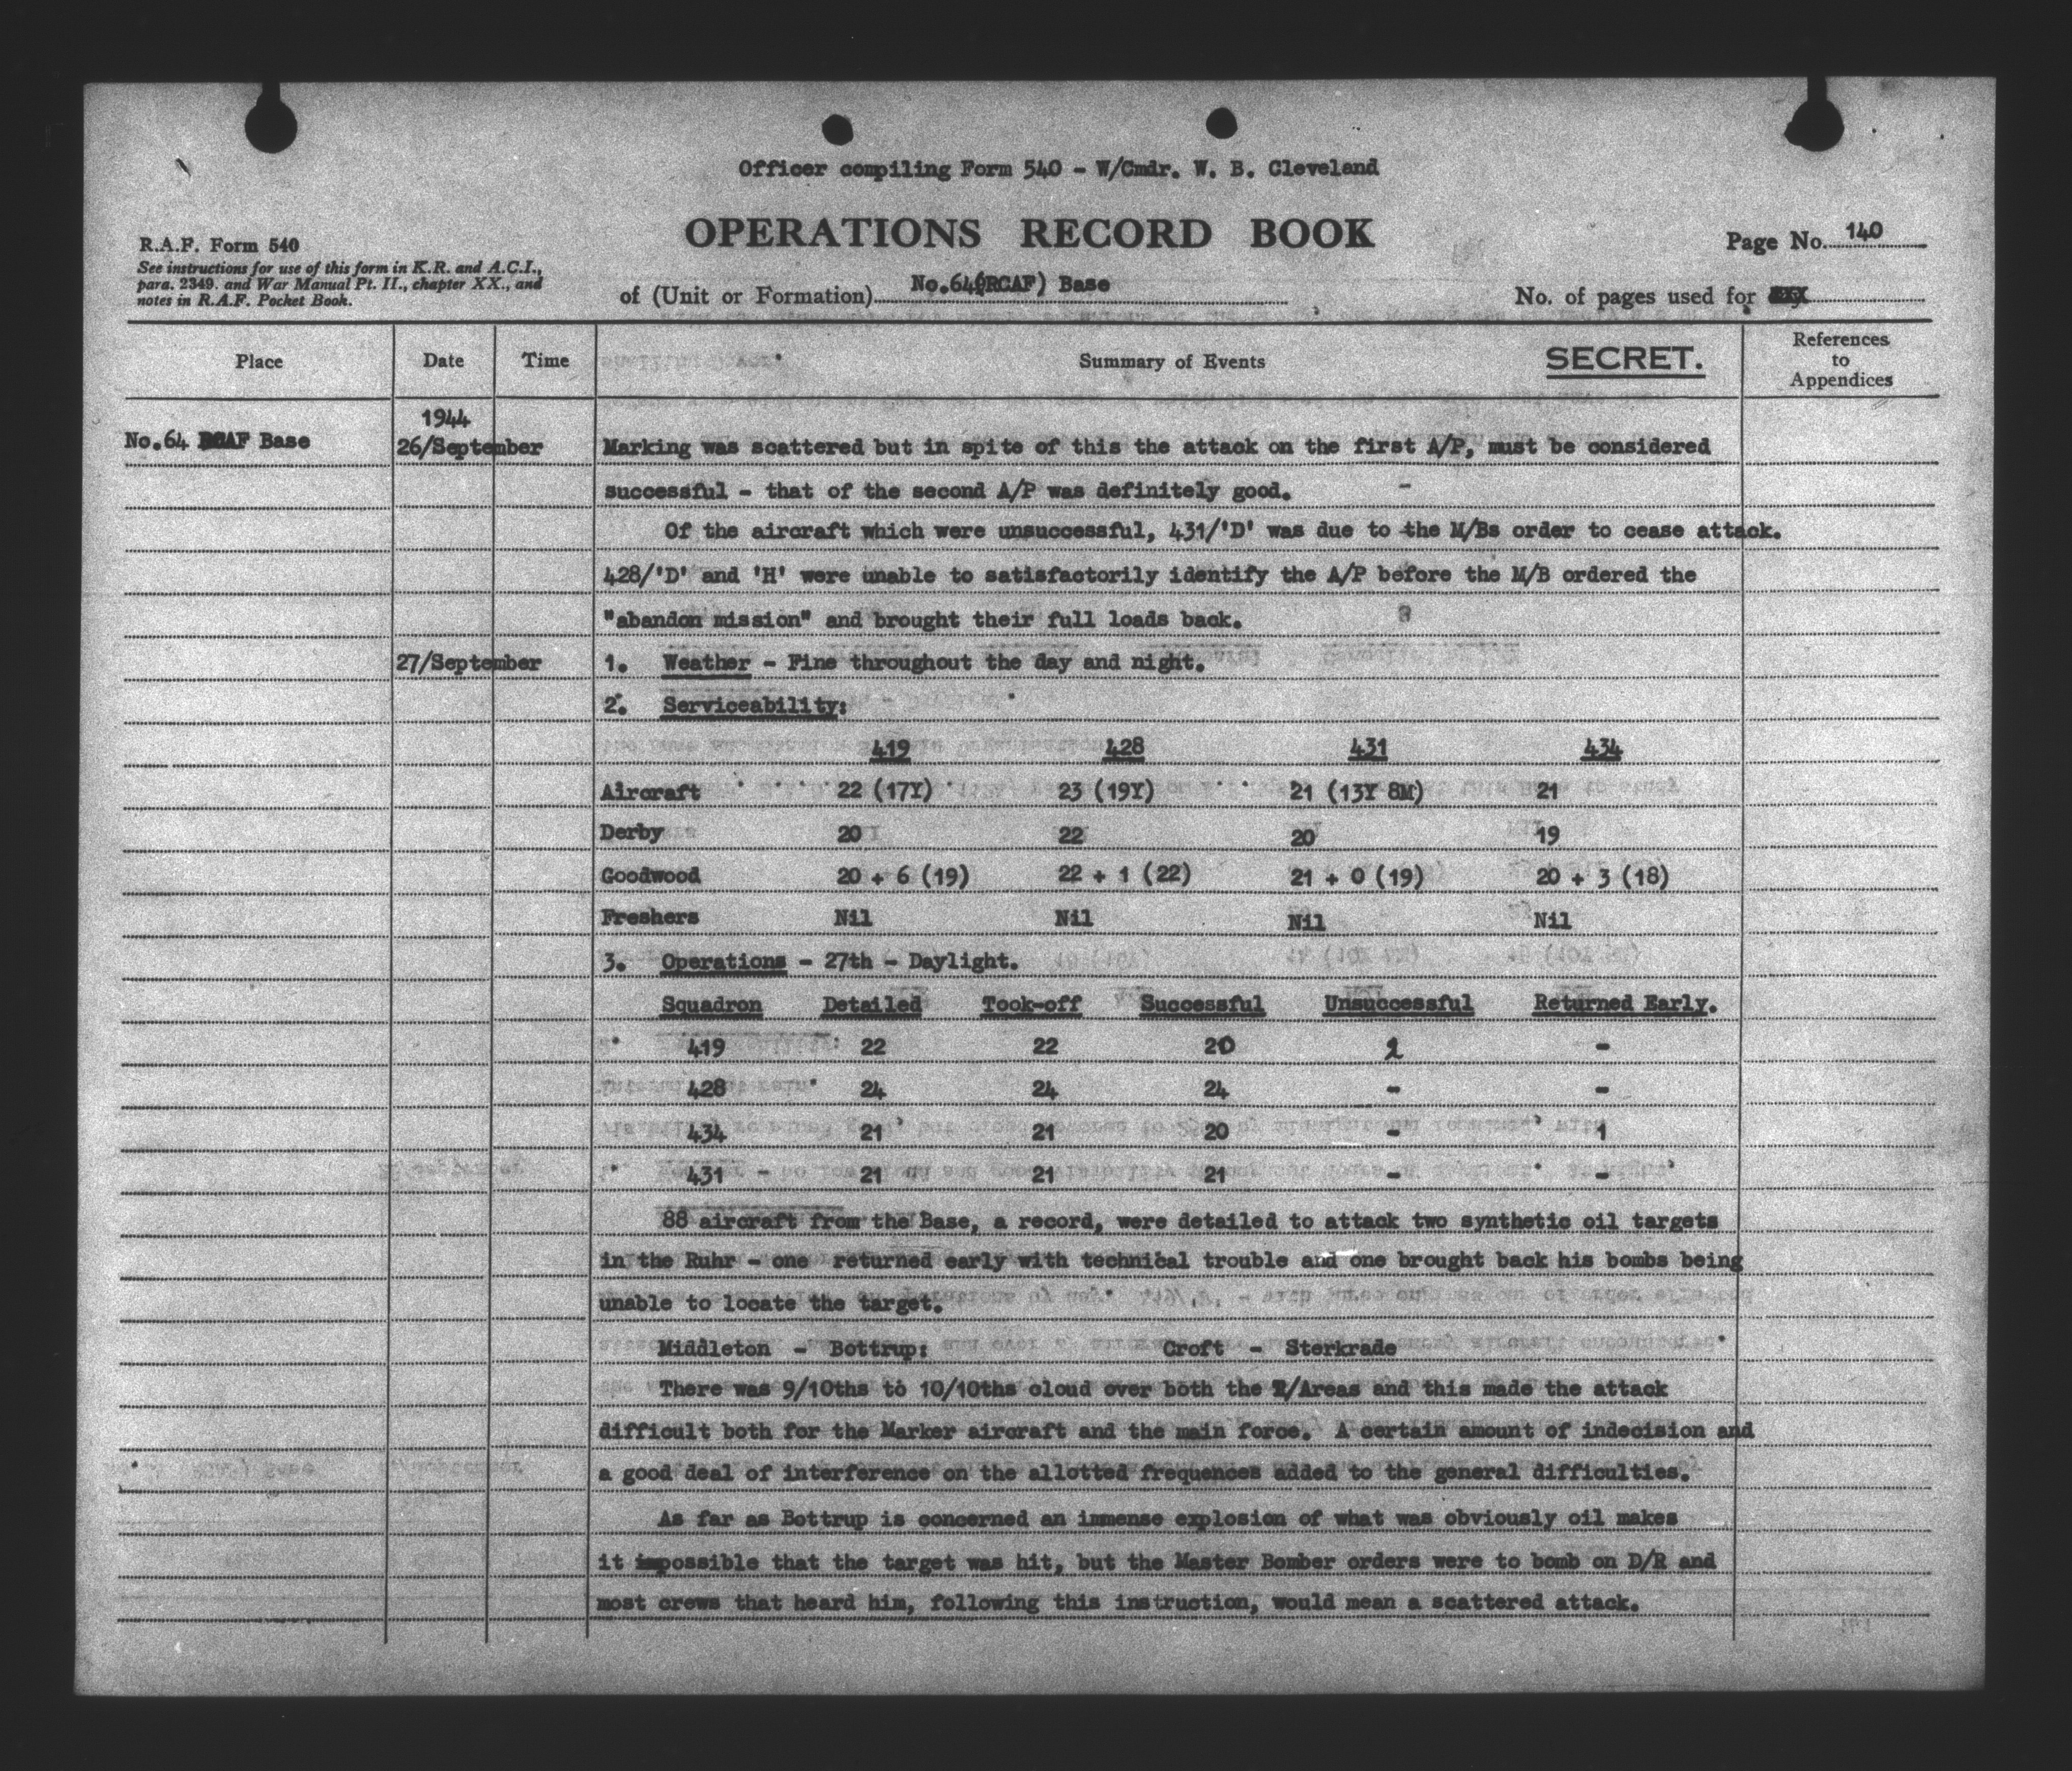 Officer compiling Form 540 - W/Cmdr. W. B. Cleveland
OPERATIONS RECORD BOOK
R.A.F. Form 540
See instructions for use of this form in K.R. and A.C.I.,
para. 2349. and War Manual Pt. II., chapter XX., and
notes in R.A.F. Pocket Book.
Page No. 140
of (Unit or Formation) No.64(RCAF) Base
No. of pages used for
Place Date Time Summary of Events SECRET. References to Appendices
1944
No.64 RCAF Base 26/September Marking was scattered but in spite of this the attack on the first A/P, must be considered
successful - that of the second A/P was definitely good. -
Of the aircraft which were unsuccessful, 431/'D' was due to the M/Bs order to cease attack.
428/'D' and 'H' were unable to satisfactorily identify the A/P before the M/B ordered the
"abandon mission" and brought their full loads back.
27/September 1. Weather - Fine throughout the day and night.
2. Serviceability:
419 428 431 434
Aircraft 22 (17Y) 23 (19Y) 21 (13Y 8M) 21
Derby 20 22 20 19
Goodwood 20 + 6 (19) 22 + 1 (22) 21 + 0 (19) 20 + 3 (18)
Freshers Nil Nil Nil Nil
3. Operations - 27th - Daylight.
Squadron Detailed Took-off Successful Unsuccessful Returned Early.
419 22 22 20 2 -
428 24 24 24 - -
434 21 21 20 - 1
431 21 21 21 - -
88 aircraft from the Base, a record, were detailed to attack two synthetic oil targets
in the Ruhr - one returned early with technical trouble and one brought back his bombs being
unable to locate the target.
Middleton - Bottrup: Croft - Sterkrade
There was 9/10ths to 10/10ths cloud over both the T/Areas and this made the attack
difficult both for the Marker aircraft and the main force. A certain amount of indecision and
a good deal of interference on the allotted frequences added to the general difficulties.
As far as Bottrup is concerned an immense explosion of what was obviously oil makes
it impossible that the target was hit, but the Master Bomber orders were to bomb on D/R and
most crews that heard him, following this instruction, would mean a scattered attack.